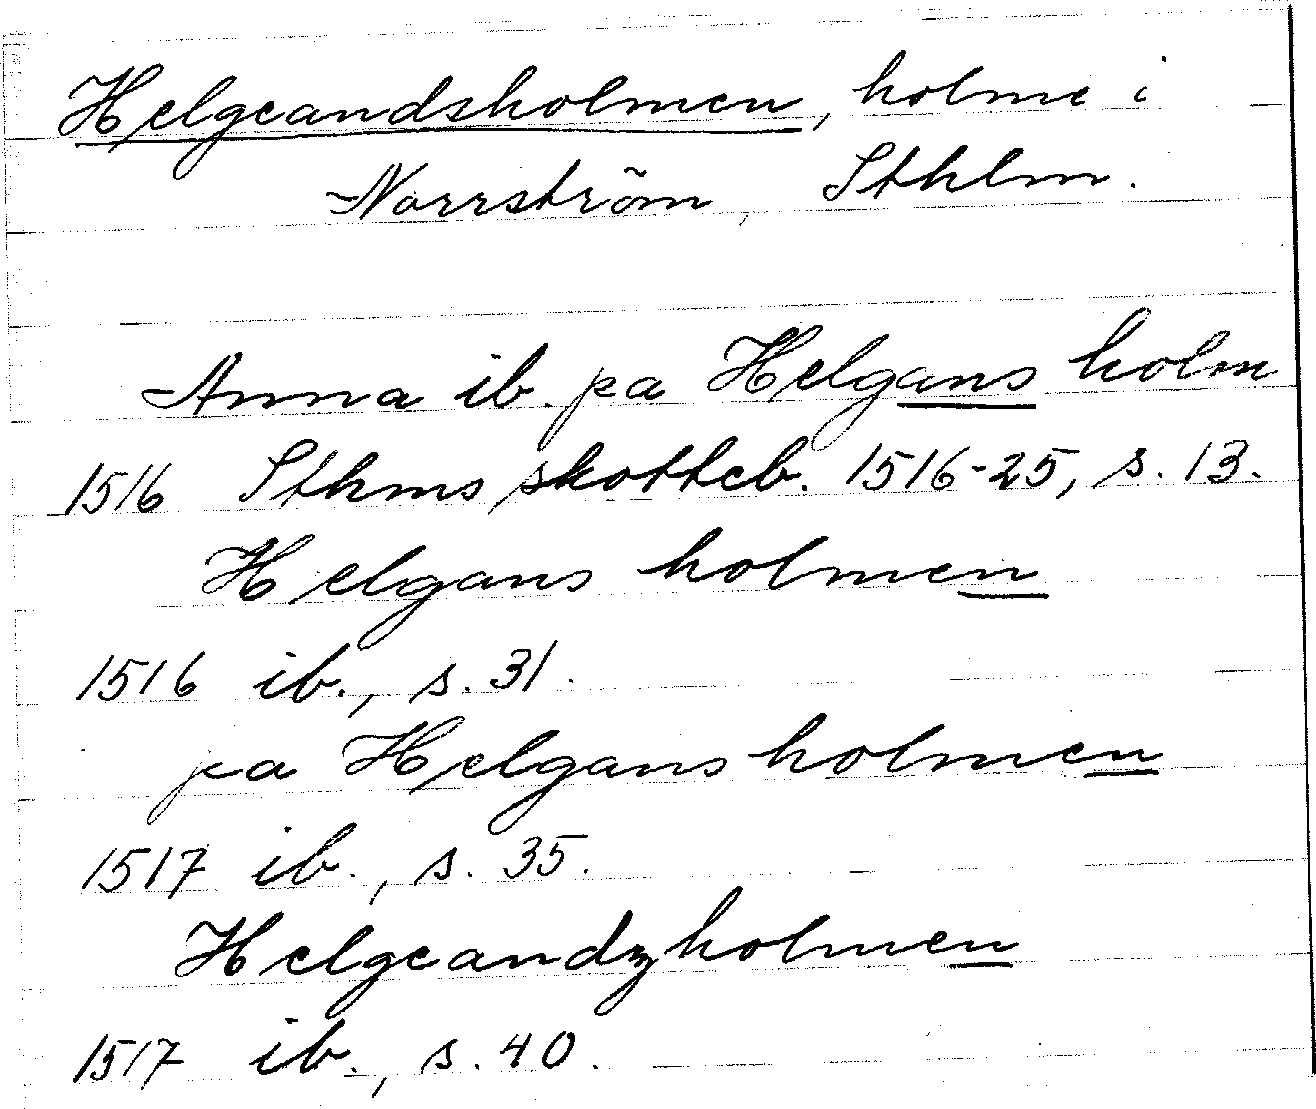 Helgeandsholmen, holme i
Norrström, Sthlm.
Anna ib. pa Helgans holm
1516 Sthms skotteb. 1516-25, s. 13.
Helgans holmen
1516 ib., s. 31.
pa Helgans holmen
1517 ib., s. 35.
Helgeandzholmen
1517 ib., s. 40.